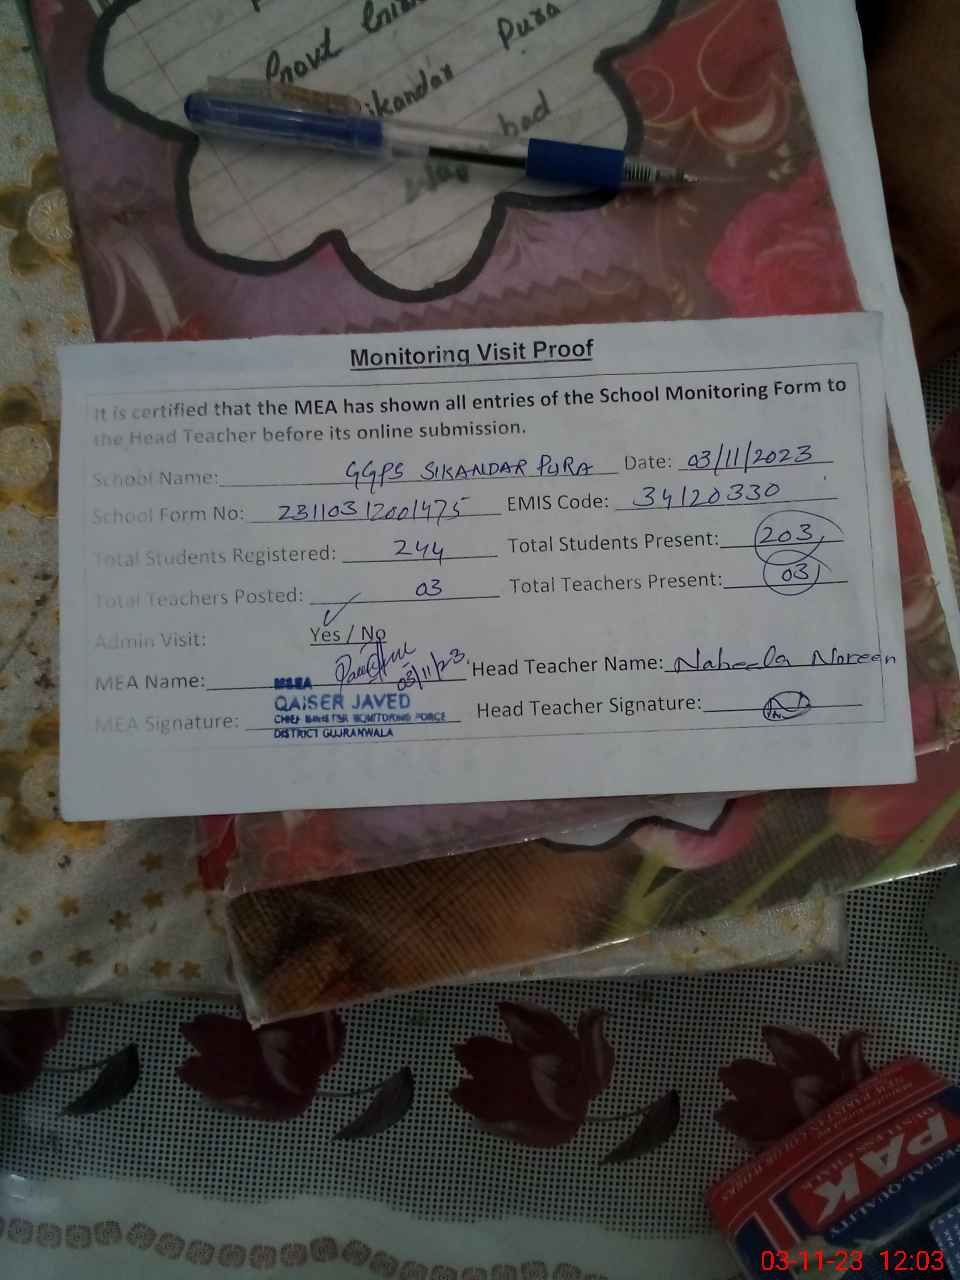 Govt
Sikandar Pura
bad
Monitoring Visit Proof
It is certified that the MEA has shown all entries of the School Monitoring Form to
the Head Teacher before its online submission.
School Name: GGPS SIKANDAR PURA Date: 03/11/2023
School Form No: 23110312001475 EMIS Code: 34120330
Total Students Registered: 244 Total Students Present: 203
Total Teachers Posted: 03 Total Teachers Present: 03
Admin Visit: Yes / No
MEA Name: 03/11/23 Head Teacher Name: Nabeela Noreen
QAISER JAVED
MEA Signature: CHIEF MINISTER MONITORING FORCE Head Teacher Signature:
DISTRICT GUJRANWALA
PAK
DUSTLESS CHALK
SPECIAL QUALITY
03-11-23 12:03